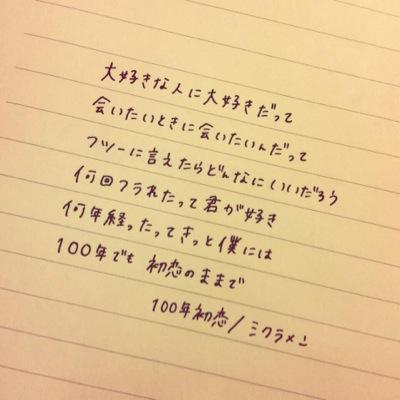 大好きな人に大好きだって
会いたいときに会いたいんだって
フツーに言えたらどんなにいいだろう
何回フラれたって君が好き
何年経ったってきっと僕には
100年でも 初恋のままで
100年初恋/ミクラメン